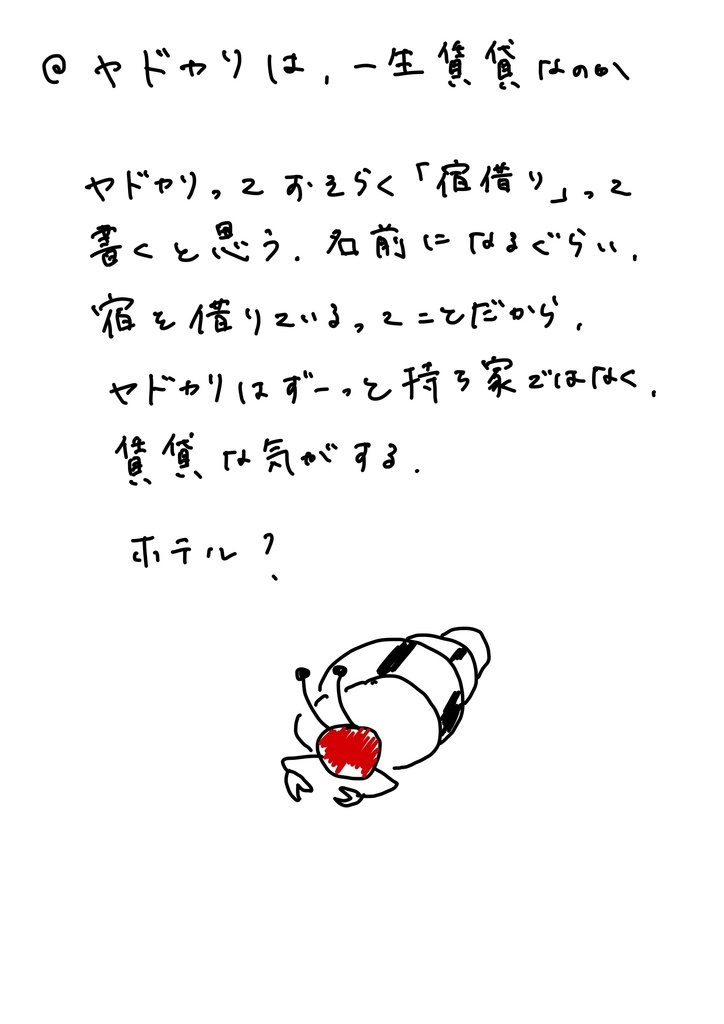 @ ヤドカリは、一生賃貸なのか
ヤドカリっておそらく「宿借り」って
書くと思う。名前になるぐらい、
宿を借りているってことだから、
ヤドカリはずーっと持ち家ではなく、
賃貸な気がする。
ホテル?